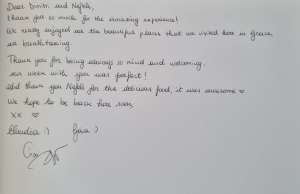 Dear Dimitri and Nefeli,
thank you so much for the amazing experience!
We really enjoyed all the beautiful places that we visited here in Greece,
so breathtaking.
Thank you for being always so kind and welcoming,
our week with you was perfect!
and thank you Nefeli for the delicious food, it was awesome ♡
We hope to be back here soon
xx ♡
Claudia :)